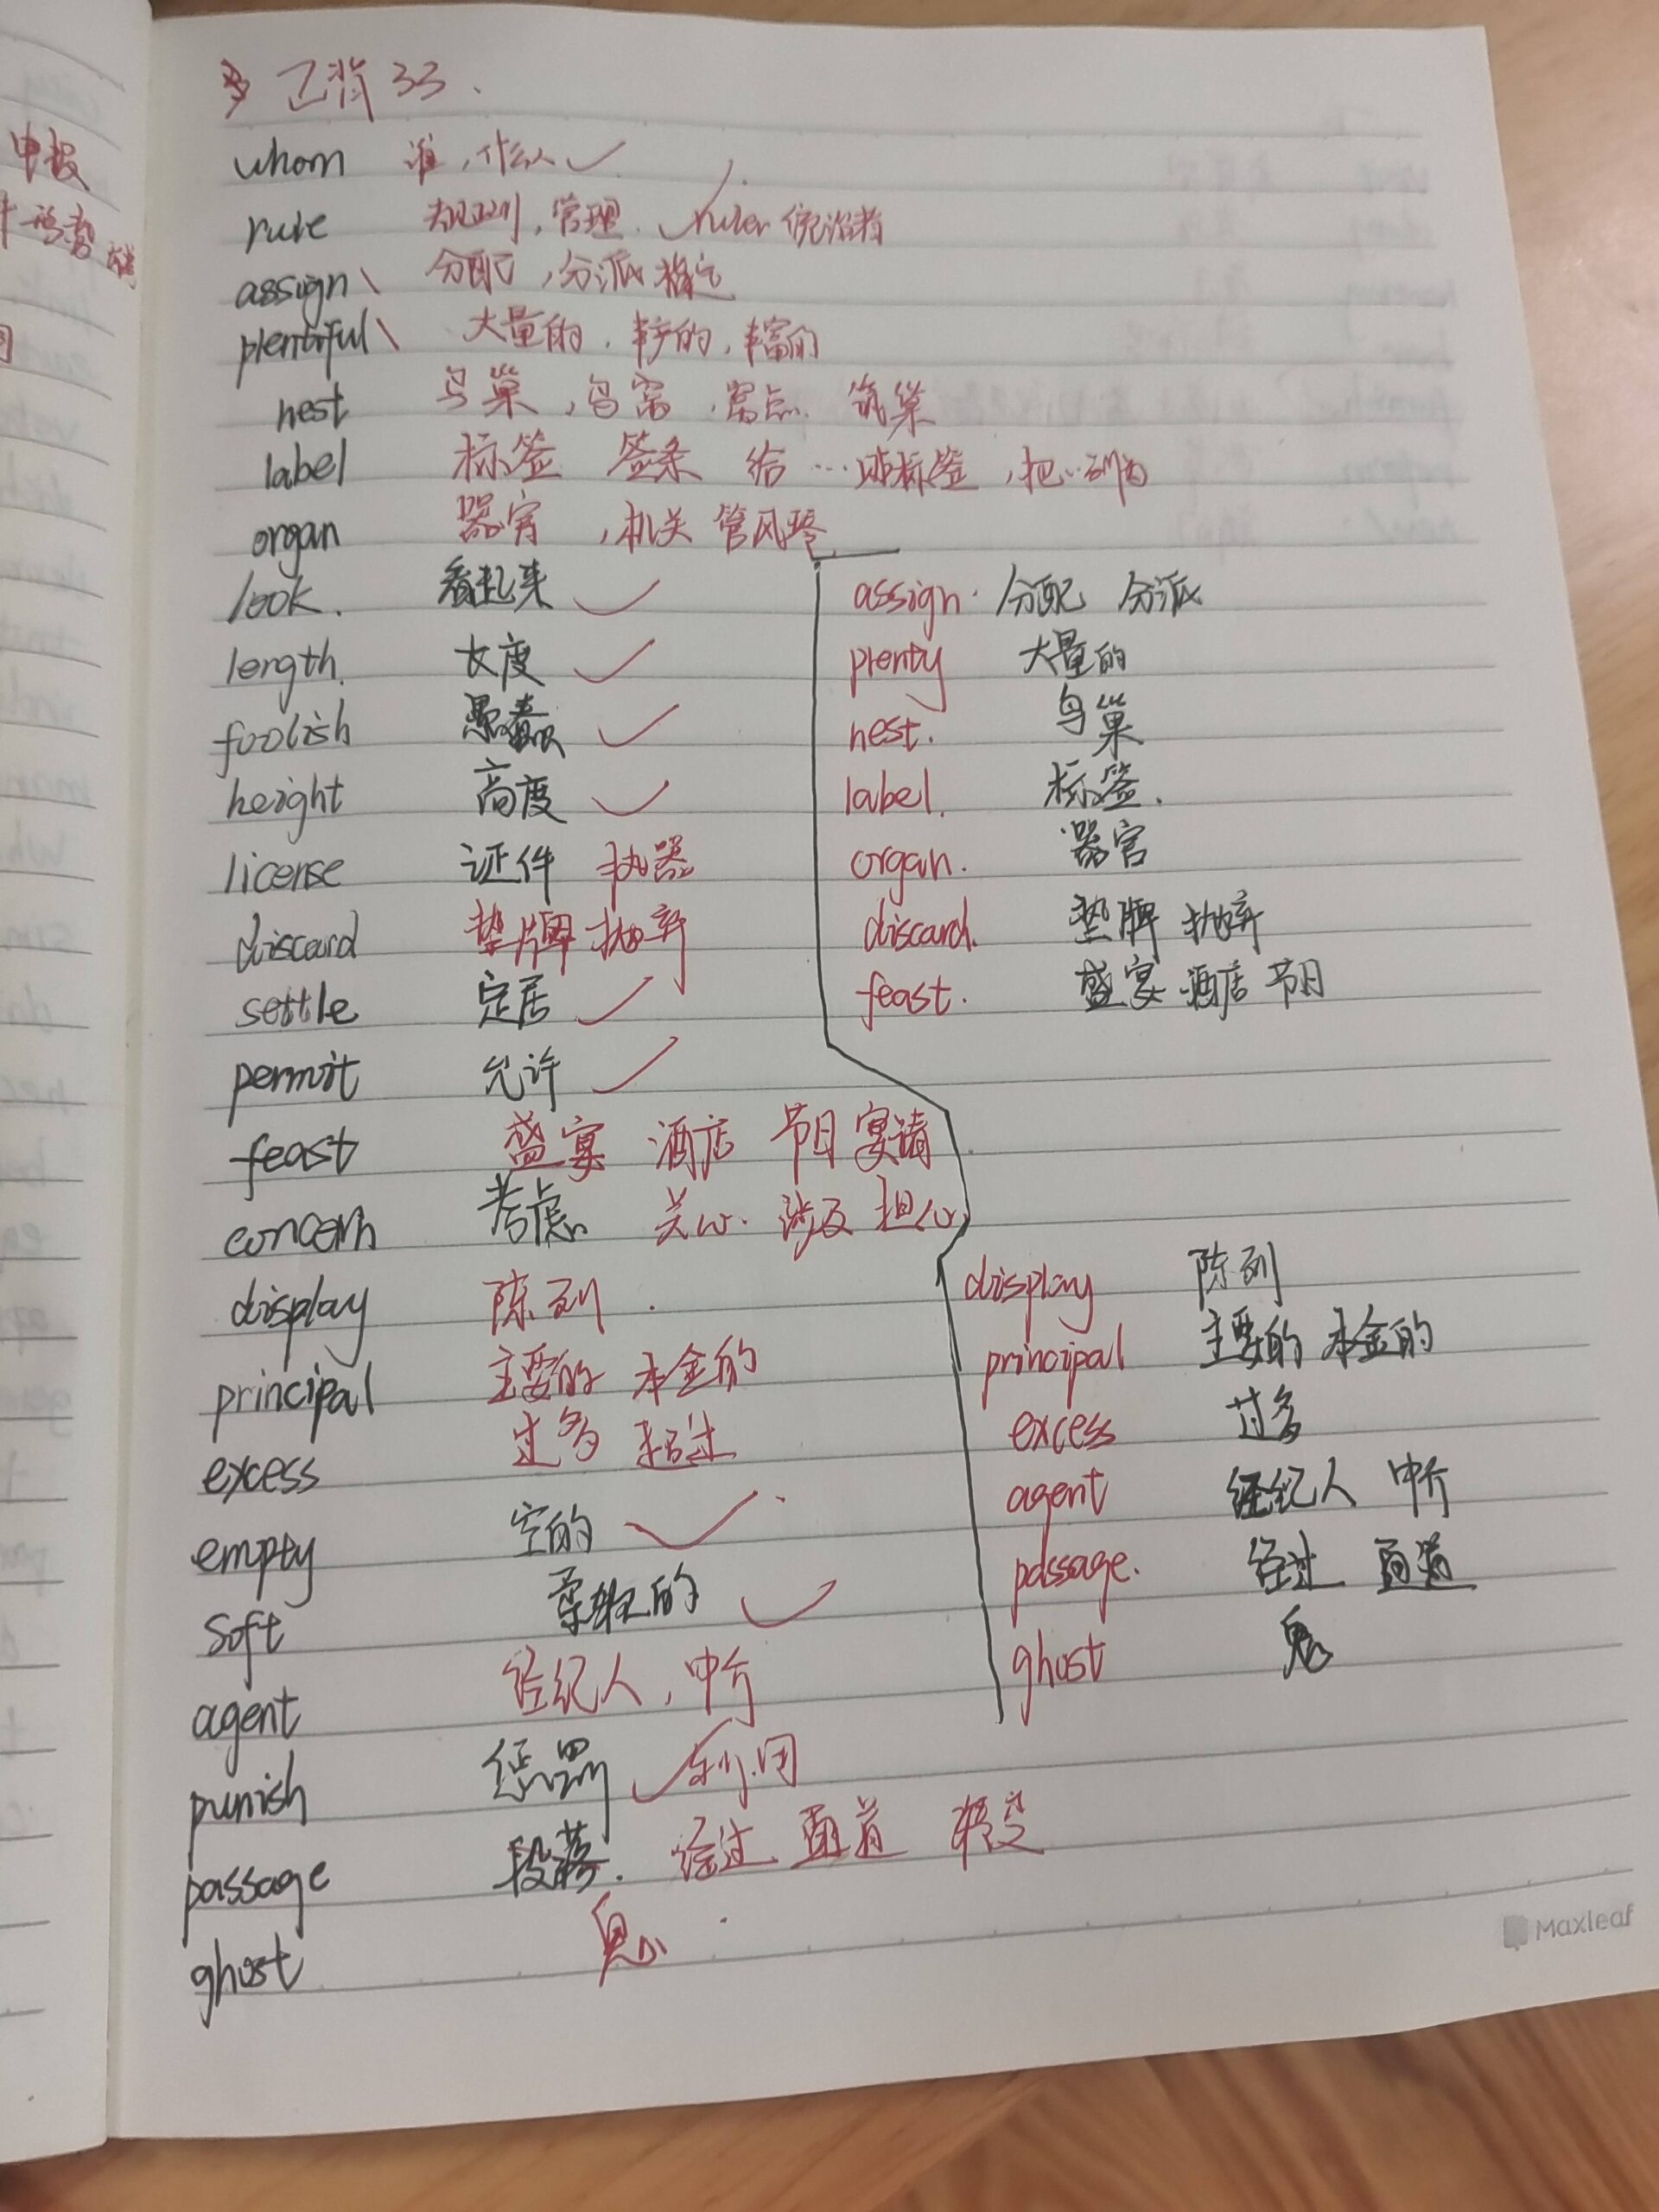 已背33.
whom 谁,什么人
rule 规则,管理. ruler 统治者
assign 分配,分派 指定
plentiful 大量的,丰产的,丰富的
nest 鸟巢,鸟窝,窝点 筑巢
label 标签 签条 给…贴标签,把…列为
organ 器官,机关 管风琴
look. 看起来
length. 长度
foolish 愚蠢
height 高度
license 证件 执器
discard 垫牌 抛弃
settle 定居
permit 允许
feast 盛宴 酒店 节日 宴请
concern 考虑 关心. 涉及 担心
display 陈列.
principal 主要的 本金的
excess 过多 超过
empty 空的
soft 柔软的
agent 经纪人,中介
punish 惩罚 利用
passage 段落. 经过 面道 转变
ghost 鬼
assign. 分配 分派
plenty 大量的
nest. 鸟巢
label. 标签.
organ. 器官
discard. 垫牌 抛弃
feast. 盛宴 酒店 节日
display 陈列
principal 主要的 本金的
excess 过多
agent 经纪人 中介
passage. 经过 面道
ghost 鬼
申报
Maxleaf